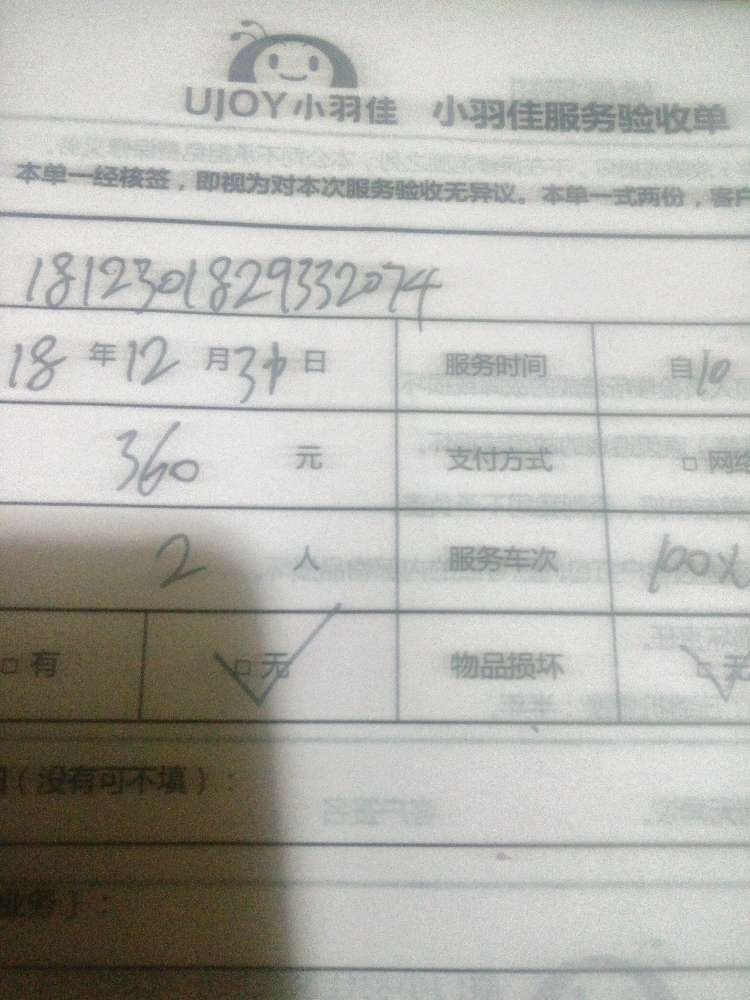 UJOY小羽佳 小羽佳服务验收单
本单一经核签，即视为对本次服务验收无异议。本单一式两份，客户
1812301829332074
18 年 12 月 31 日 服务时间 自 10
360 元 支付方式 □ 网络
2 人 服务车次
□ 有 □ 无 物品损坏 □ 无
（没有可不填）：
业务］：